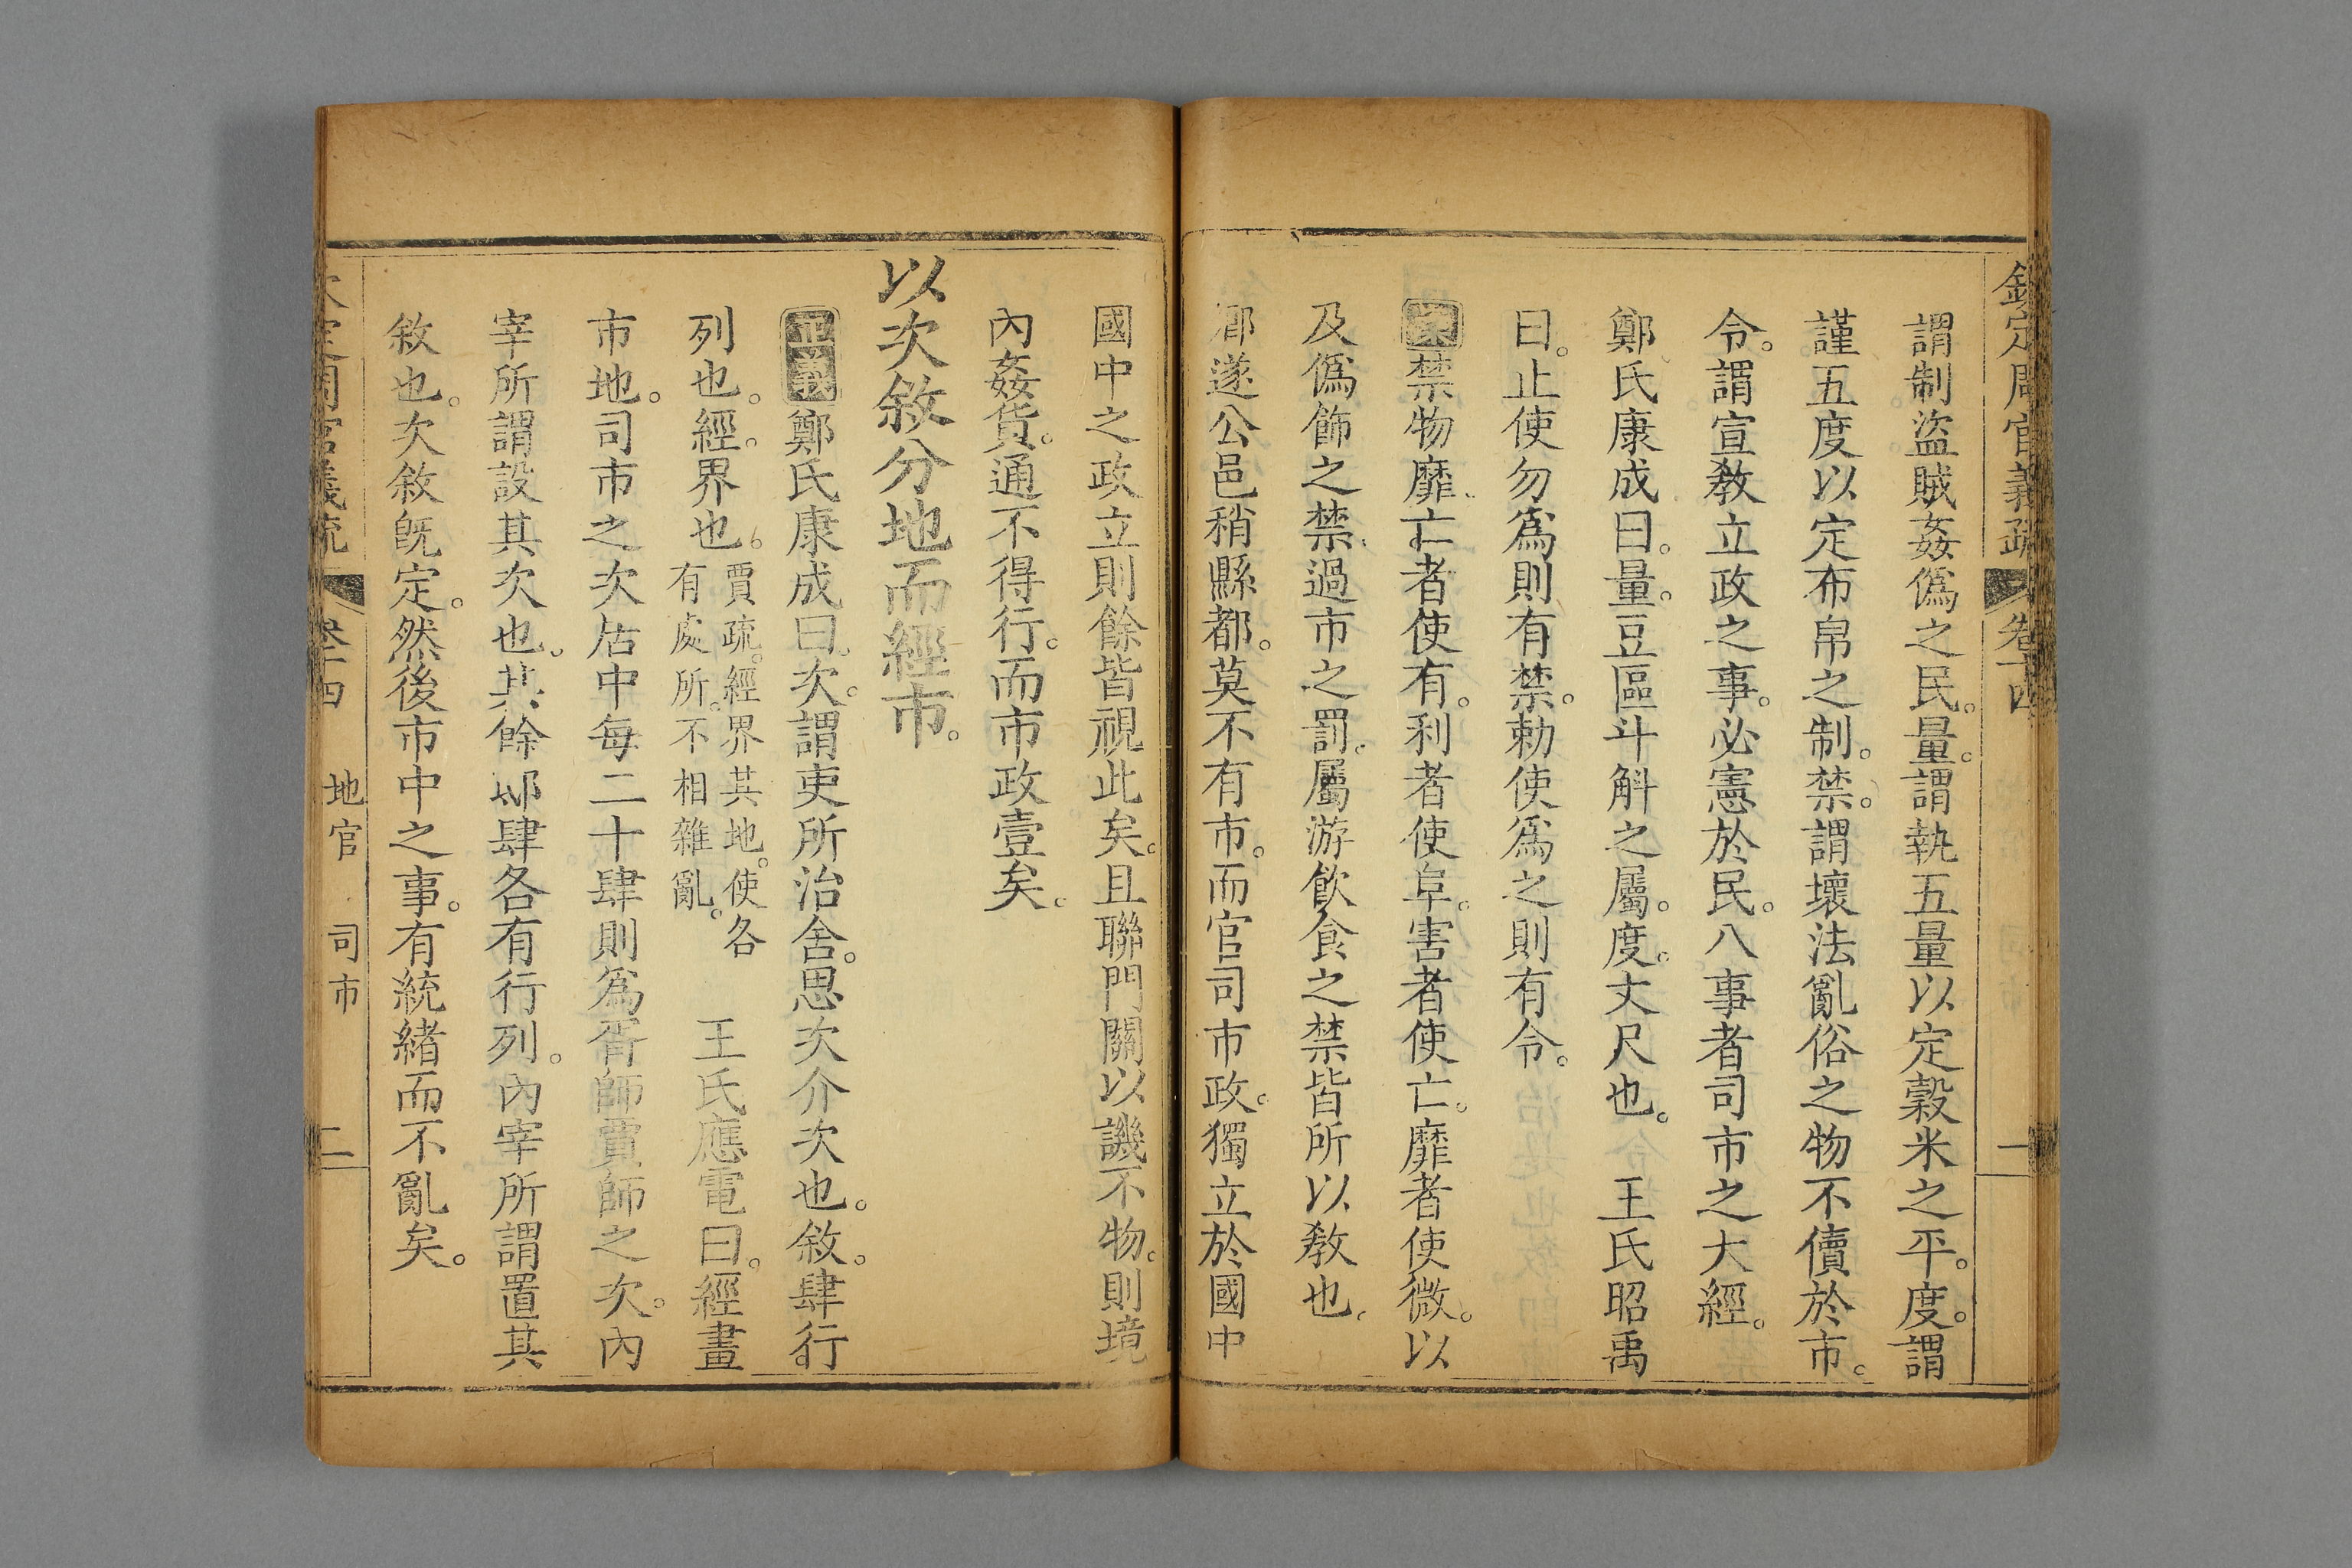 欽定周官義疏 卷十四 一
謂制盜賊姦僞之民。量。謂執五量以定穀米之平。度。謂
謹五度以定布帛之制。禁。謂壞法亂俗之物不儥於市。
令。謂宣敎立政之事。必憲於民。八事者司市之大經。
鄭氏康成曰。量。豆區斗斛之屬。度。丈尺也。 王氏昭禹
曰。止使勿爲則有禁。勅使爲之則有令。
案禁物靡亡者使有。利者使阜。害者使亡。靡者使微。以
及僞飾之禁。過市之罰。屬游飮食之禁皆所以敎也。
鄕遂公邑稍縣都。莫不有市。而官司市政。獨立於國中
國中之政立則餘皆視此矣。且聯門關以譏不物。則境
內姦貨。通不得行。而市政壹矣。
以次敘分地而經市。
正義鄭氏康成曰。次。謂吏所治舍。思次介次也。敘。肆行
列也。經。界也。賈疏。經界其地。使各有處所。不相雜亂。 王氏應電曰。經畫
市地。司市之次居中每二十肆則爲胥師賈師之次。內
宰所謂設其次也。其餘邸肆各有行列。內宰所謂置其
敘也。次敘旣定。然後市中之事。有統緖而不亂矣。
欽定周官義疏 卷十四 地官 司市 二